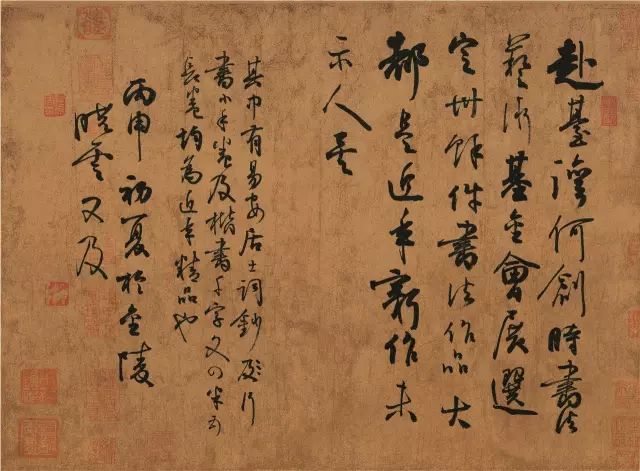 赴臺灣何創時書法
藝術基金會展選
定卅餘件書法作品大
都是近年新作未
示人者
其中有易安居士詞鈔
書小手卷及楷書千字文
長卷均為近年精品也
丙申初夏於金陵
曉雲又及